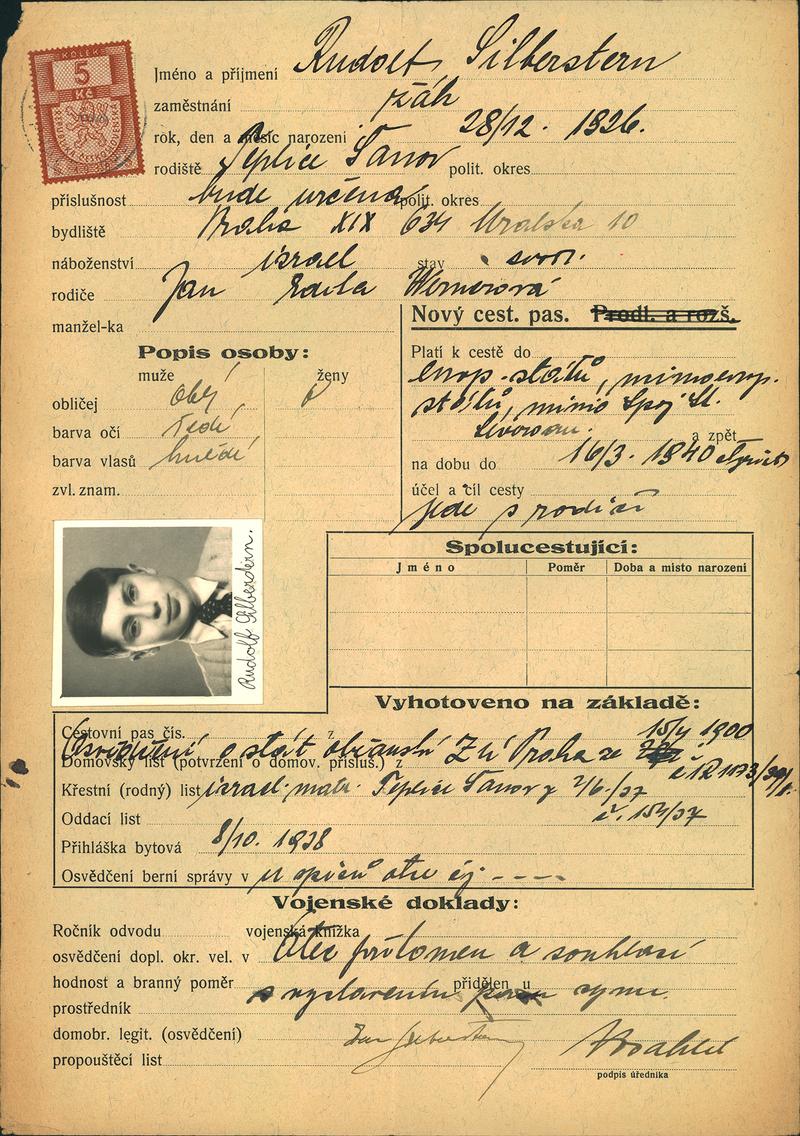 KOLEK
5
Kč
Jméno a příjmení Rudolf Silberstern
zaměstnání žák
rok, den a měsíc narození 28/12. 1926.
rodiště Teplice Šanov polit. okres
příslušnost bude určena polit. okres
bydliště Praha XIX 634 Uralska 10
náboženství israel stav svob.
rodiče Jan Edvla Wernerová
manžel-ka
Nový cest. pas. Prodl. a rozš.
Popis osoby:
muže ženy
obličej obl
barva očí šedé
barva vlasů hnědé
zvl. znam.
Platí k cestě do
evrop. států, mimoevrop.
států, mimo Spoj. St.
a zpět
na dobu do 16/3. 1940
účel a cíl cesty
jede s rodiči
Rudolf Silberstern.
Spolucestující:
Jméno Poměr Doba a místo narození
Vyhotoveno na základě:
Cestovní pas čís. z
Osvědčení o stát občanství ZÚ Praha ze
Domovský list (potvrzení o domov. přísluš.) z
Křestní (rodný) list israel. matr. Teplice Šanov z 2/6./37
Oddací list č. 154/37
Přihláška bytová 8/10. 1938
Osvědčení berní správy v u spisů otce čj - - - -
Vojenské doklady:
Ročník odvodu vojenská knížka
osvědčení dopl. okr. vel. v Otec přítomen a souhlasí
hodnost a branný poměr přidělen u
s vystavením pasu synu.
prostředník
domobr. legit. (osvědčení)
propouštěcí list
podpis úředníka